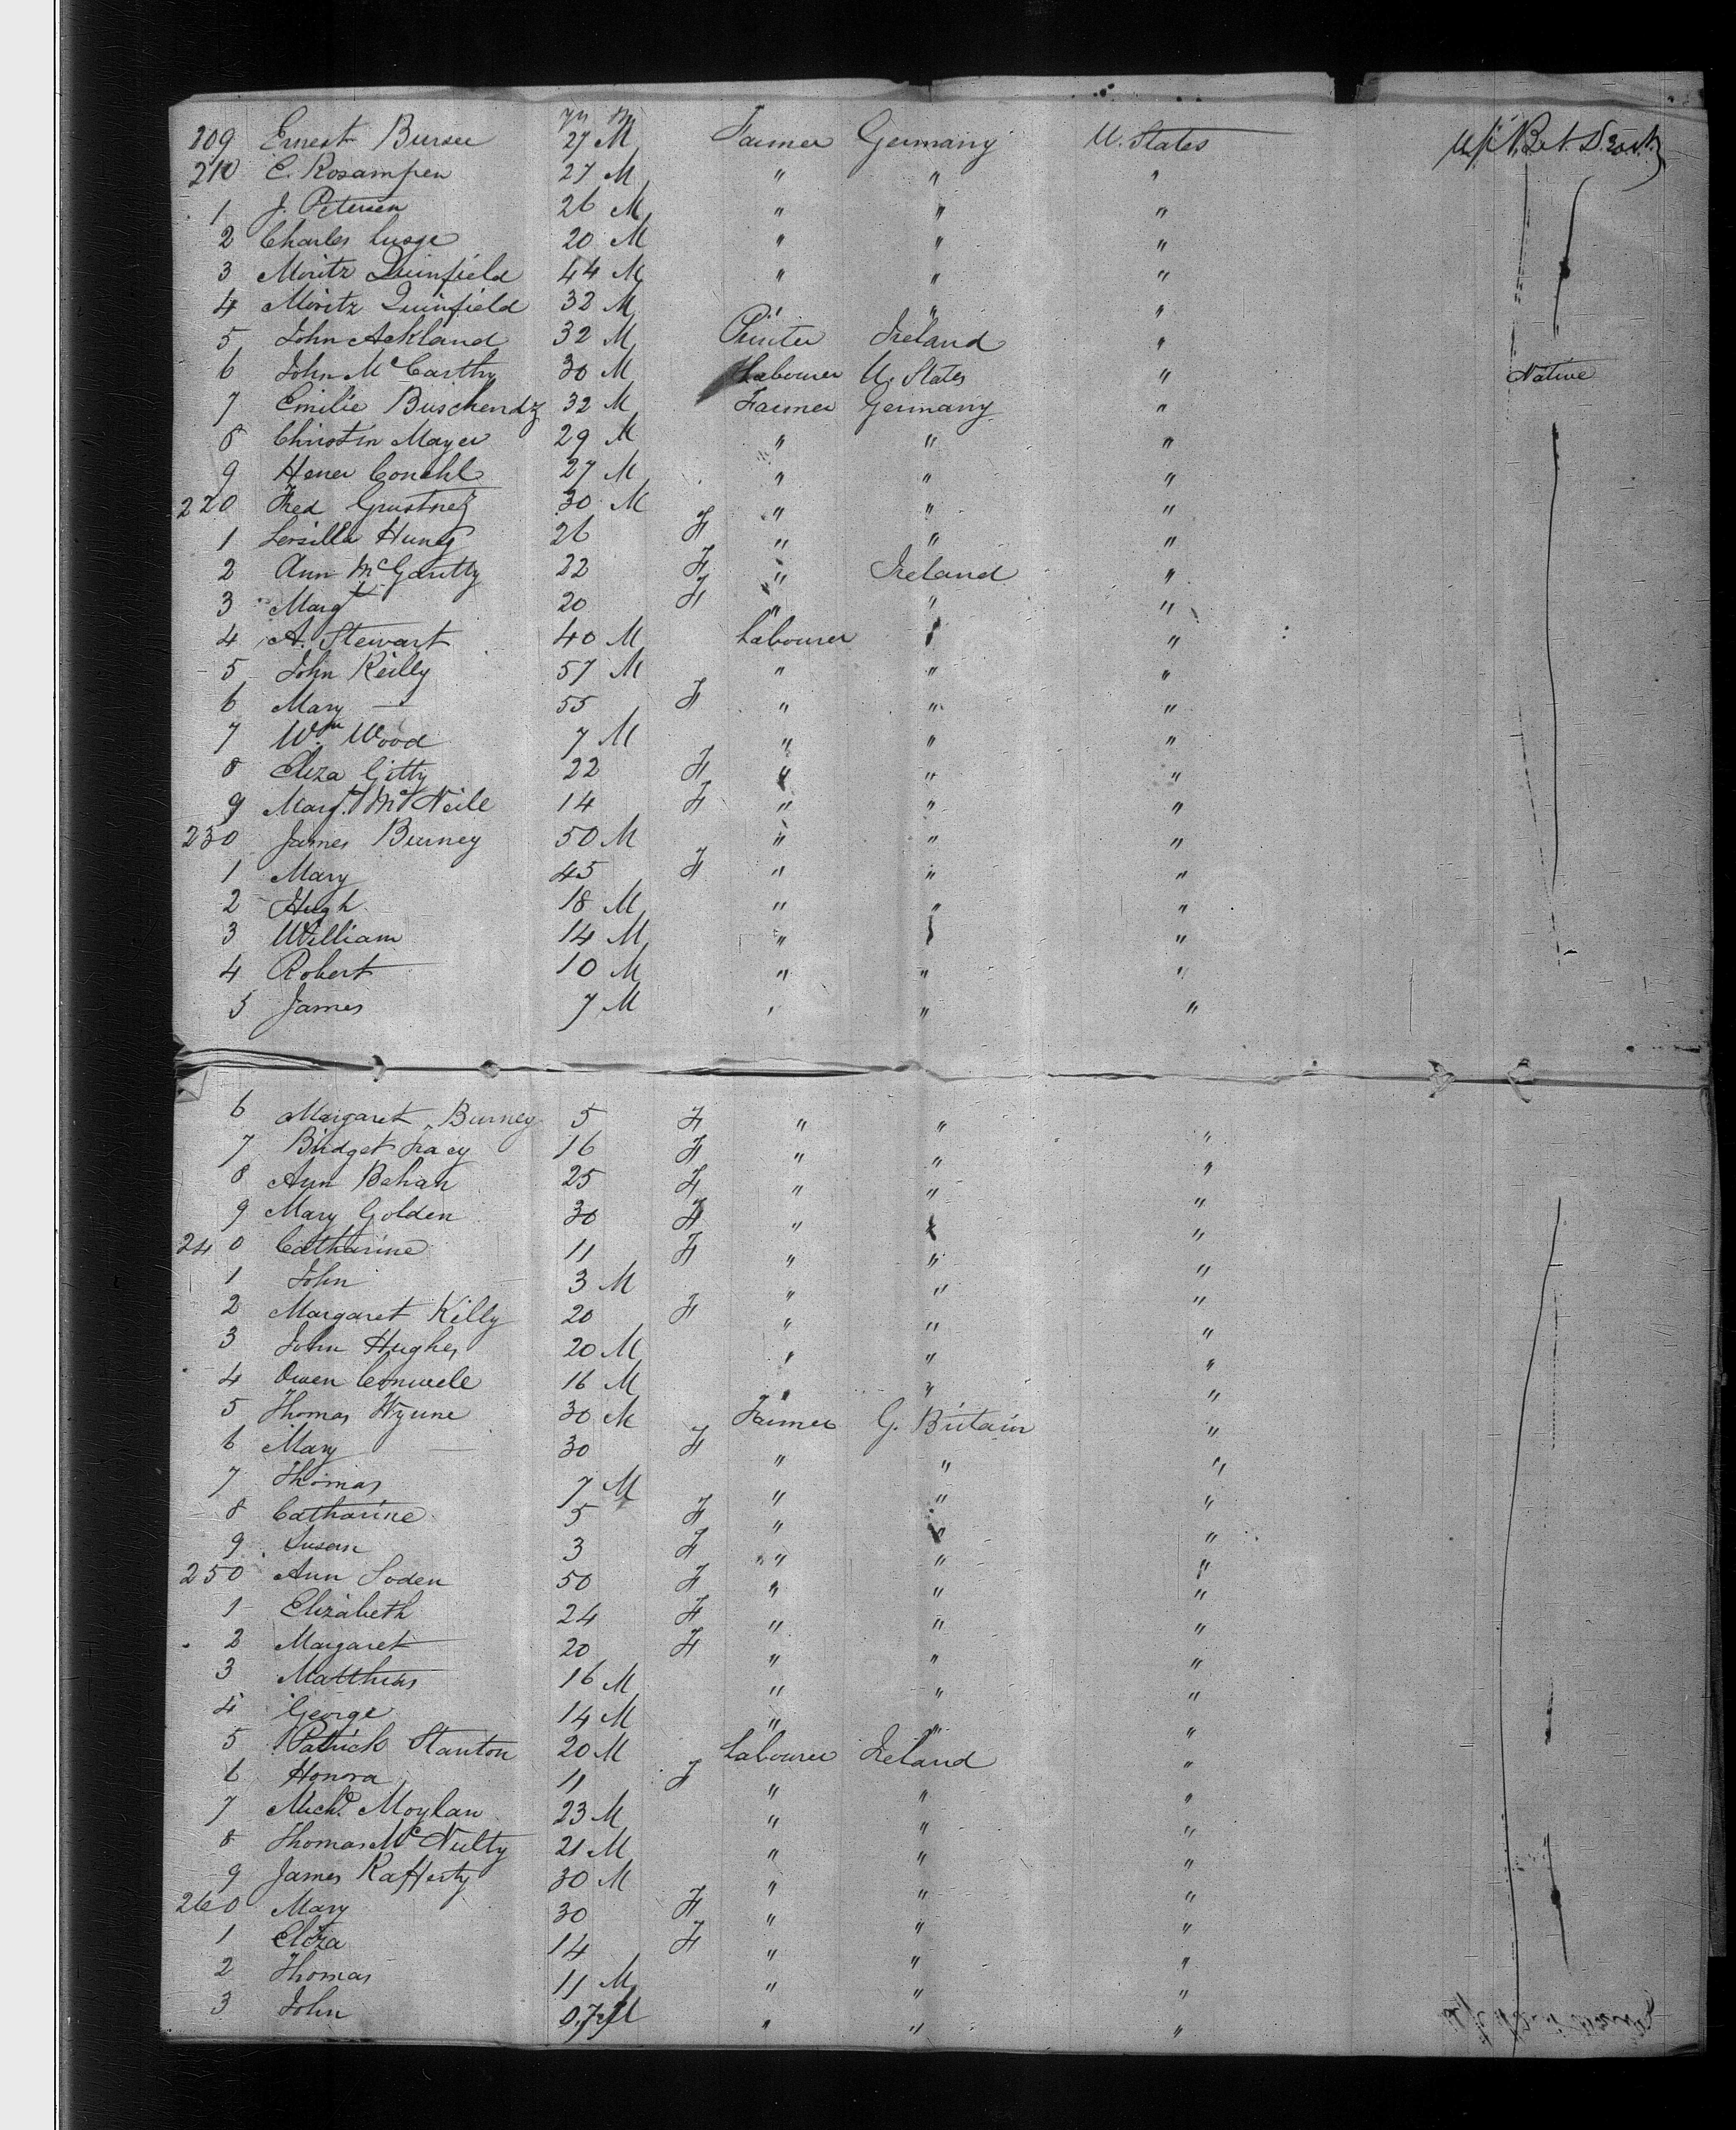 Yrs M
209 Ernest Burser 27 M Farmer Germany U. States
210 E. Rosampen 27 M " " "
1 J. Petersen 26 M " " "
2 Charles Lusge 20 M " " "
3 Moritz Quinfield 44 M " " "
4 Moritz Quinfield 32 M " " "
5 John Ackland 32 M Printer Ireland "
6 John McCarthy 30 M Labourer U. States " Native
7 Emilie Buschendz 32 M Farmer Germany "
8 Christin Mayer 29 M " " "
9 Hener Conehl 27 M " " "
220 Fred 30 M " " "
1 Hung 26 F " " "
2 Ann McGaritty 22 F " Ireland "
3 Margt 20 F " " "
4 A. Stewart 40 M Labourer " "
5 John Reilly 57 M " " "
6 Mary — 55 F " " "
7 Wm Wood 7 M " " "
8 Eliza Gitty 22 F " " "
9 Margt McNeile 14 F " " "
230 James Burney 50 M " " "
1 Mary 45 F " " "
2 Hugh 18 M " " "
3 William 14 M " " "
4 Robert 10 M " " "
5 James 7 M " " "
6 Margaret Burney 5 F " " "
7 Bridget Tracy 16 F " " "
8 Ann Behan 25 F " " "
9 Mary Golden 30 F " " "
240 Catharine 11 F " " "
1 John 3 M " " "
2 Margaret Killy 20 F " " "
3 John Hughes 20 M " " "
4 Owen Conwele 16 M " " "
5 Thomas Wynne 30 M Farmer G. Britain "
6 Mary — 30 F " " "
7 Thomas 7 M " " "
8 Catharine 5 F " " "
9 Susan 3 F " " "
250 Ann Soden 50 F " " "
1 Elizabeth 24 F " " "
2 Margaret 20 F " " "
3 Matthias 16 M " " "
4 George 14 M " " "
5 Patrick Stanton 20 M Labourer Ireland "
6 Honora 11 F " " "
7 Michd. Moylan 23 M " " "
8 Thomas McNulty 21 M " " "
9 James Rafferty 30 M " " "
260 Mary 30 F " " "
1 Eliza 14 F " " "
2 Thomas 11 M " " "
3 John M " " "